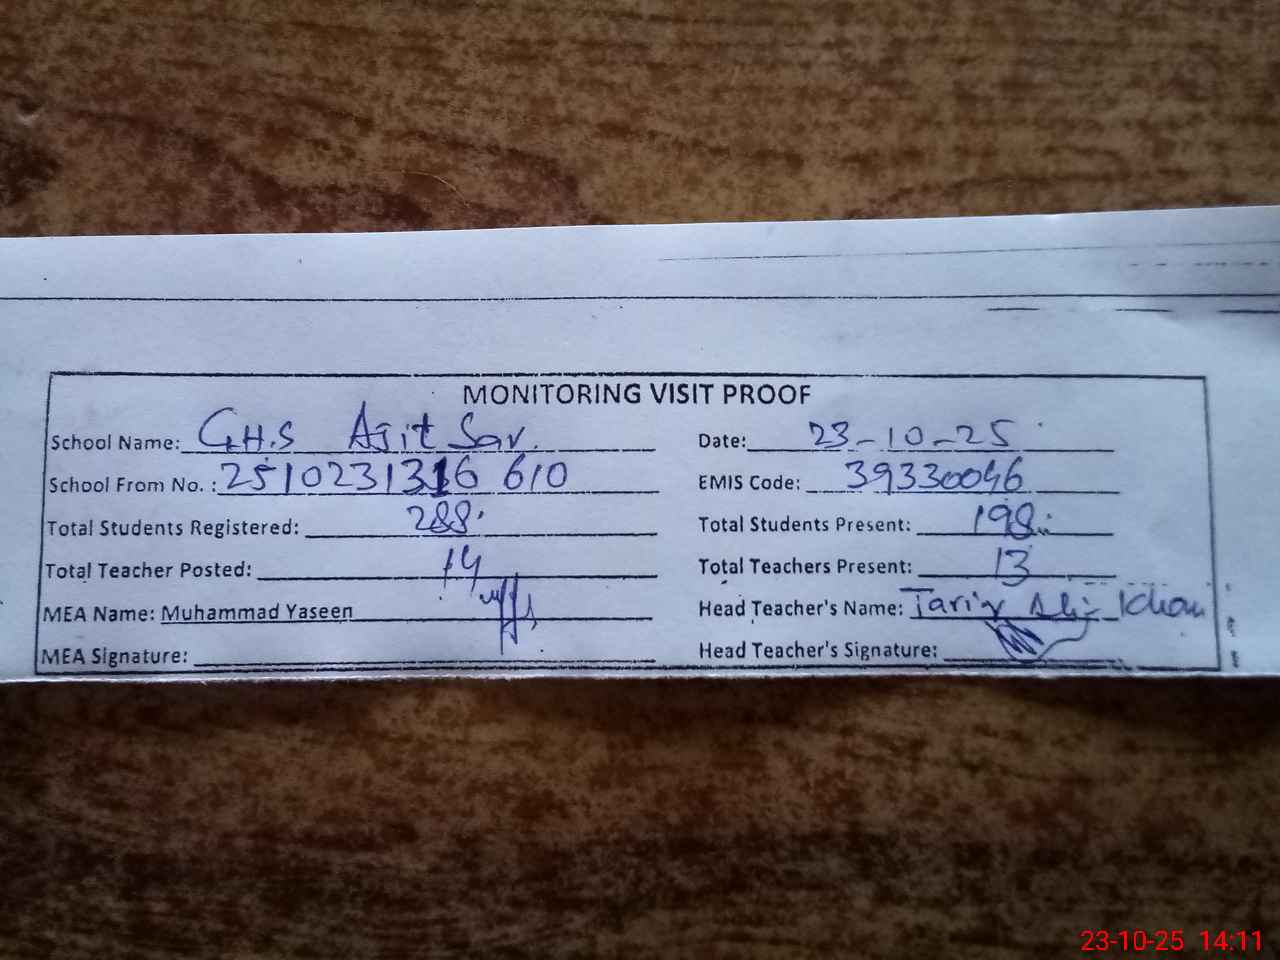 MONITORING VISIT PROOF
School Name: G.H.S Ajit Sar. Date: 23-10-25
School From No. : 2510231316 610 EMIS Code: 39330046
Total Students Registered: 288 Total Students Present: 198
Total Teacher Posted: 14 Total Teachers Present: 13
MEA Name: Muhammad Yaseen Head Teacher's Name: Tariq Ali Khan
MEA Signature: Head Teacher's Signature:
23-10-25 14:11